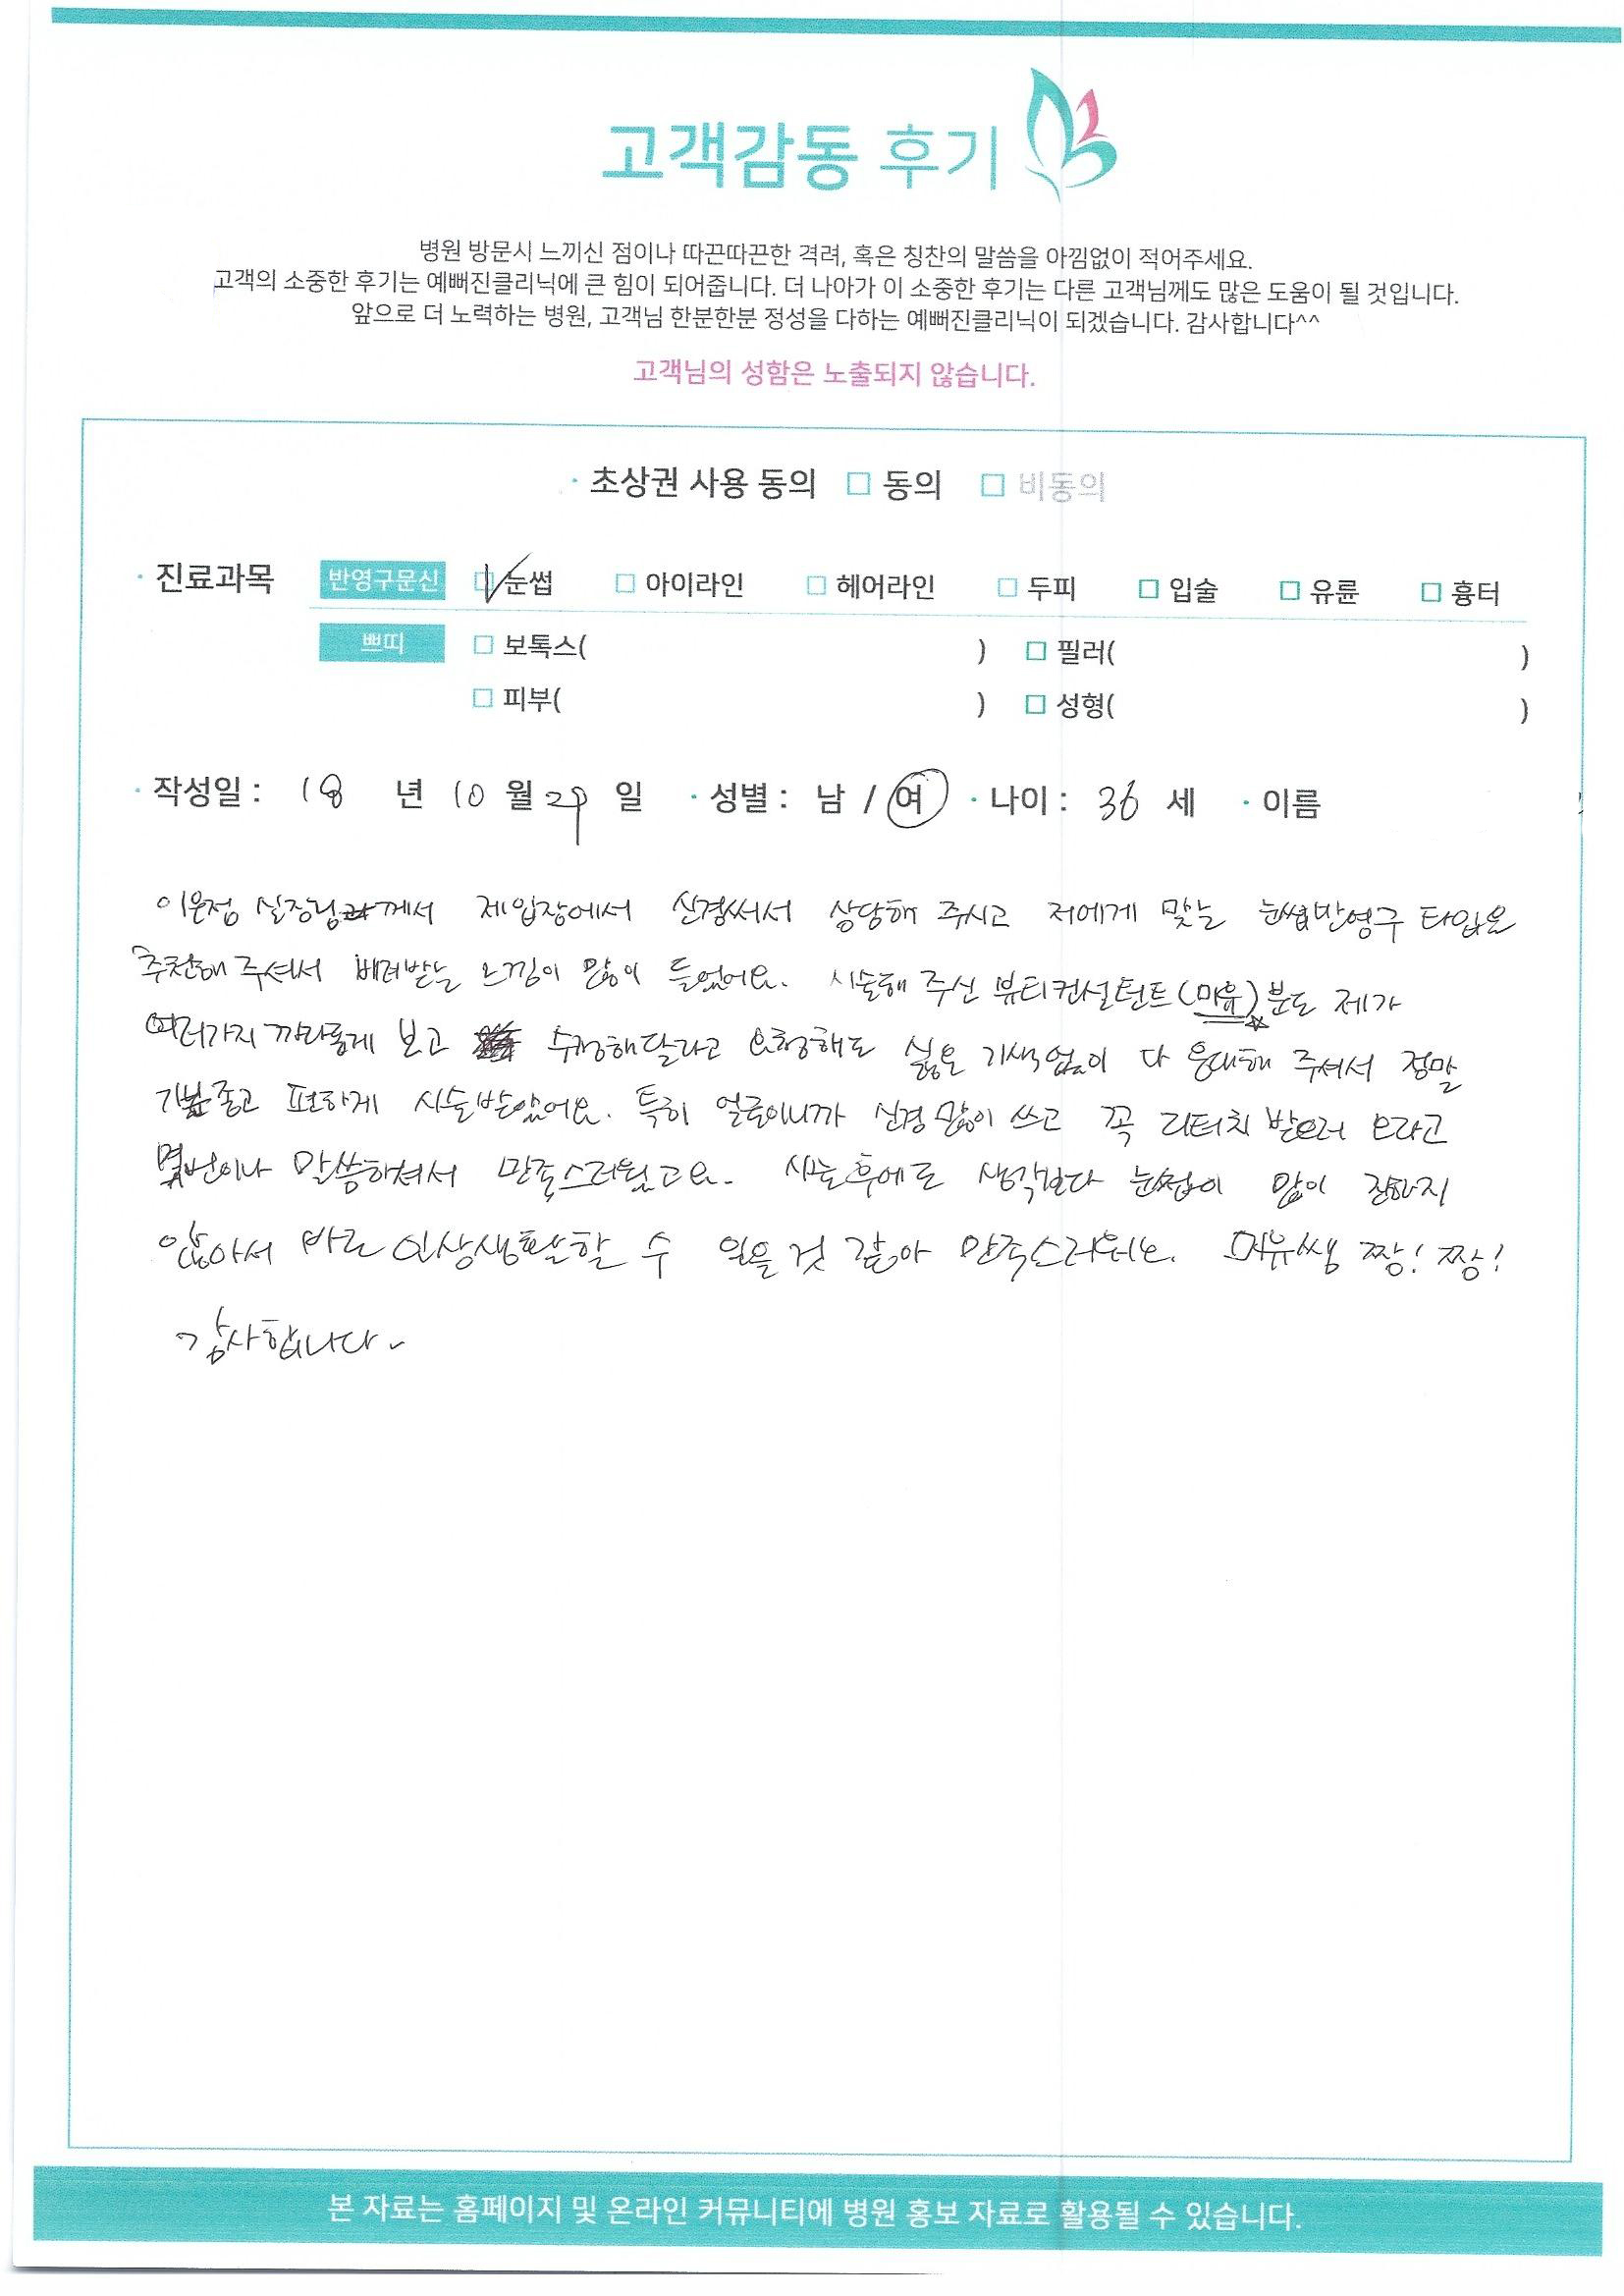 고객감동 후기
병원 방문시 느끼신 점이나 따끈따끈한 격려, 혹은 칭찬의 말씀을 아낌없이 적어주세요.
고객의 소중한 후기는 예뻐진클리닉에 큰 힘이 되어줍니다. 더 나아가 이 소중한 후기는 다른 고객님께도 많은 도움이 될 것입니다.
앞으로 더 노력하는 병원, 고객님 한분한분 정성을 다하는 예뻐진클리닉이 되겠습니다. 감사합니다^^
고객님의 성함은 노출되지 않습니다.
· 초상권 사용 동의 □ 동의 □ 비동의
· 진료과목 반영구문신 ☑ 눈썹 □ 아이라인 □ 헤어라인 □ 두피 □ 입술 □ 유륜 □ 흉터
쁘띠 □ 보톡스( ) □ 필러( )
□ 피부( ) □ 성형( )
· 작성일 : 18 년 10 월 29 일 · 성별 : 남 / 여 · 나이 : 36 세 · 이름
이은정 실장님께서 제입장에서 신경써서 상담해 주시고 저에게 맞는 눈썹반영구 타입을
추천해 주셔서 배려받는 느낌이 많이 들었어요. 시술해 주신 뷰티컨설턴트(미유)분도 제가
여러가지 까다롭게 보고 수정해달라고 요청해도 싫은 기색없이 다 응대해 주셔서 정말
기분좋고 편하게 시술받았어요. 특히 얼굴이니까 신경 많이 쓰고 꼭 리터치 받으러 오라고
몇번이나 말씀하셔서 만족스러웠고요. 시술후에도 생각보다 눈썹이 많이 진하지
않아서 바로 일상생활할 수 있을 것 같아 만족스러워요. 미유쌤 짱! 짱!
감사합니다~
본 자료는 홈페이지 및 온라인 커뮤니티에 병원 홍보 자료로 활용될 수 있습니다.